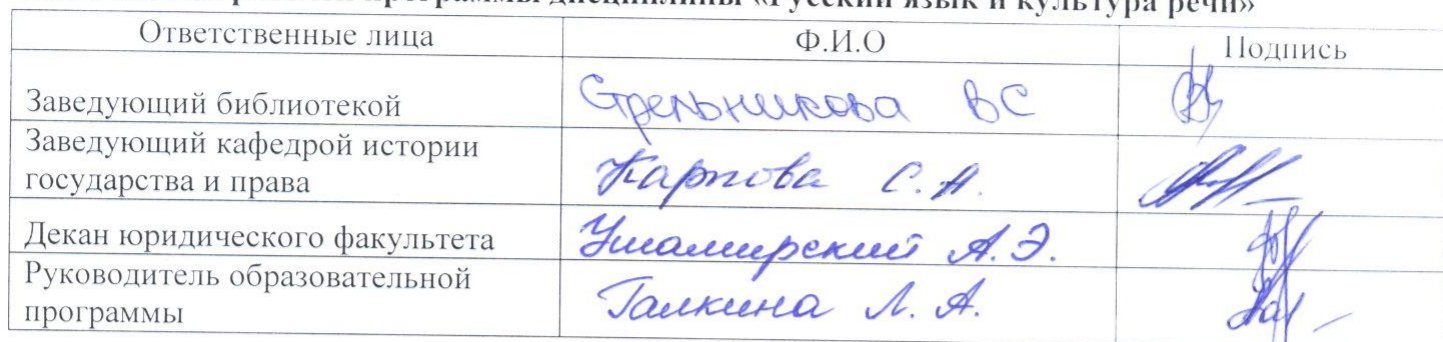 программы дисциплины «Русский язык и культура речи»
Ответственные лица Ф.И.О Подпись
Заведующий библиотекой Стрельникова ВС
Заведующий кафедрой истории
государства и права Карпова С.А.
Декан юридического факультета Ушамирский А.Э.
Руководитель образовательной
программы Галкина Л.А.